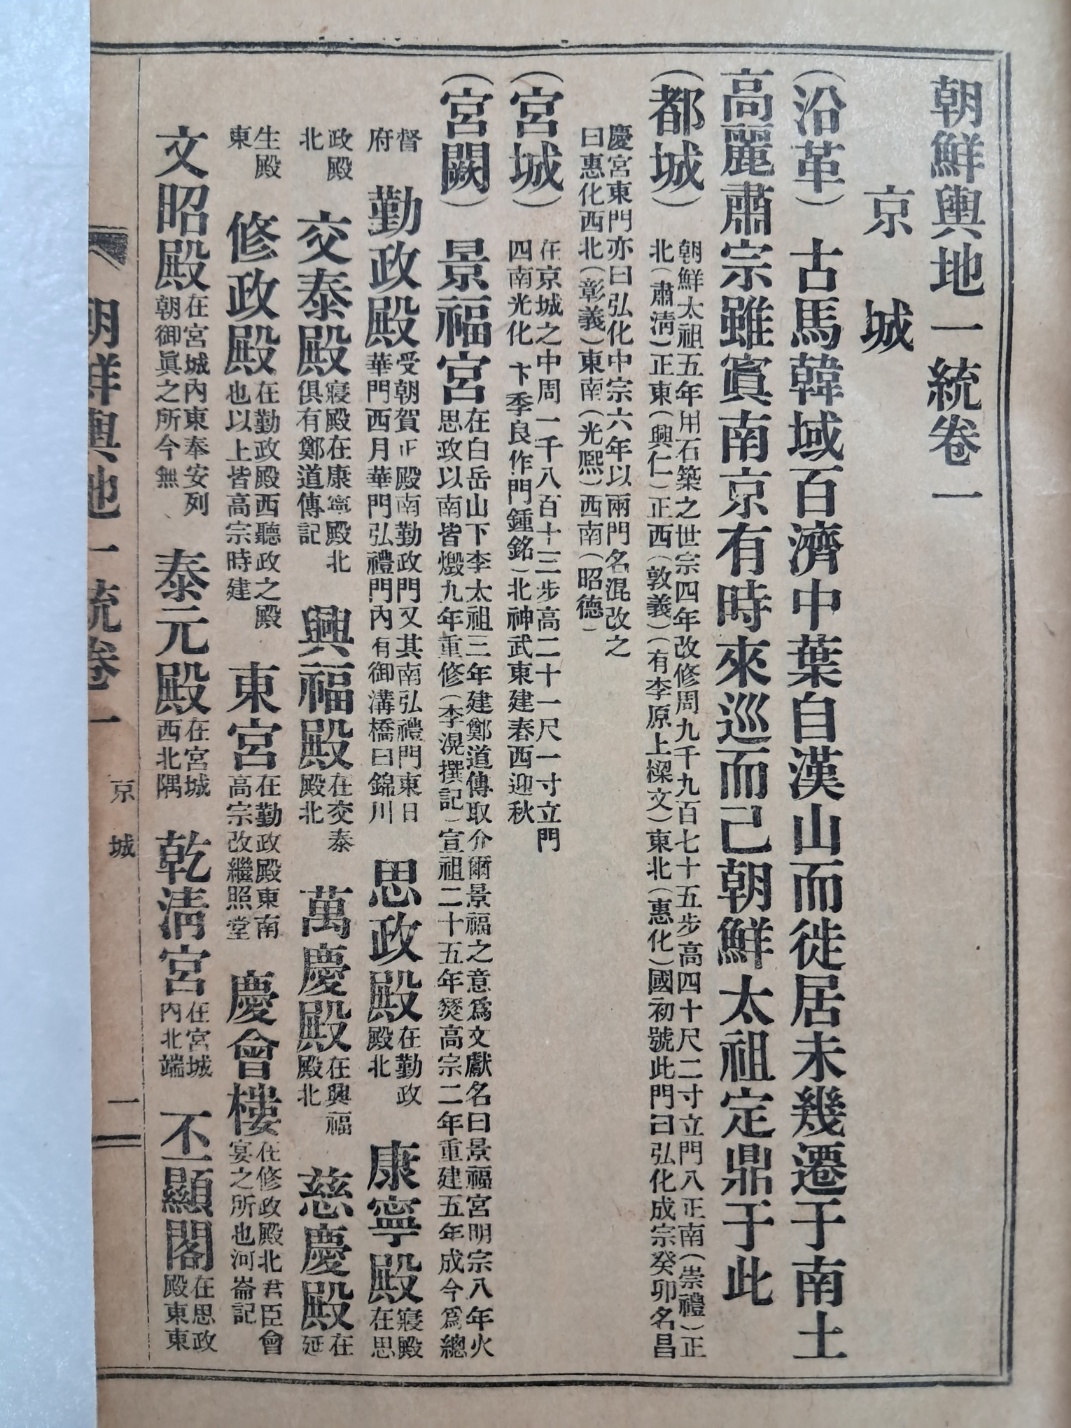 朝鮮輿地一統卷一
京城
(沿革) 古馬韓域百濟中葉自漢山而徙居未幾遷于南土
高麗肅宗雖寘南京有時來巡而已朝鮮太祖定鼎于此
(都城) 朝鮮太祖五年用石築之世宗四年改修周九千九百七十五步高四十尺二寸立門八正南(崇禮)正
北(肅淸)正東(興仁)正西(敦義)(有李原上樑文)東北(惠化)國初號此門曰弘化成宗癸卯名昌
慶宮東門亦曰弘化中宗六年以兩門名混改之
曰惠化西北(彰義)東南(光熙)西南(昭德)
(宮城) 在京城之中周一千八百十三步高二十一尺一寸立門
四南光化(卞季良作門鍾銘)北神武東建春西迎秋
(宮闕) 景福宮在白岳山下李太祖三年建鄭道傳取介爾景福之意爲文獻名曰景福宮明宗八年火
思政以南皆燬九年重修(李滉撰記)宣祖二十五年燹高宗二年重建五年成今爲總
督
府 勤政殿受朝賀正殿南勤政門又其南弘禮門東日
華門西月華門弘禮門內有御溝橋曰錦川 思政殿在勤政
殿北 康寧殿寢殿
在思
政殿
北 交泰殿寢殿在康寧殿北
俱有鄭道傳記 興福殿在交泰
殿北 萬慶殿在興福
殿北 慈慶殿在
延
生殿
東 修政殿在勤政殿西聽政之殿
也以上皆高宗時建 東宮在勤政殿東南
高宗改繼照堂 慶會樓在修政殿北君臣會
宴之所也河崙記
文昭殿在宮城內東奉安列
朝御眞之所今無 泰元殿在宮城
西北隅 乾淸宮在宮城
內北端 丕顯閣在思政
殿東東
朝鮮輿地一統卷一 京城 一